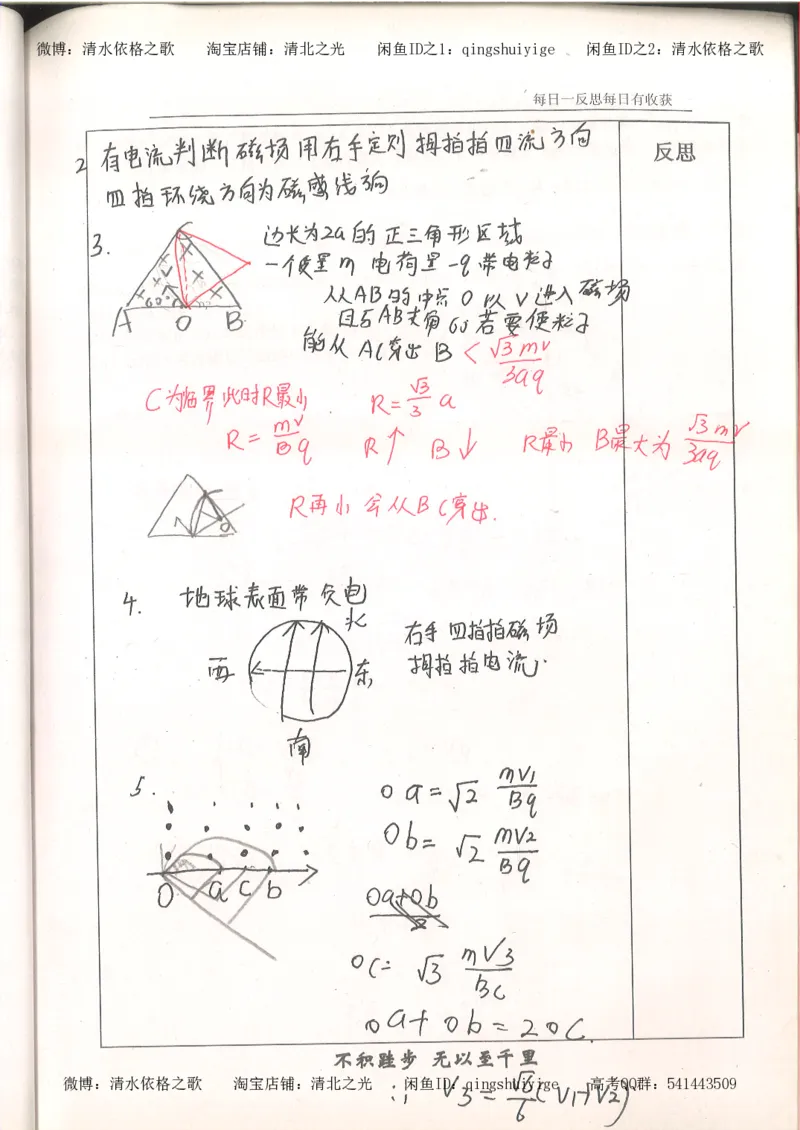 微博：清水依格之歌 淘宝店铺：清北之光 闲鱼ID之1：qingshuiyige 闲鱼ID之2：清水依格之歌
每日一反思每日有收获
反思
2 有电流判断磁场用右手定则 拇指指四流方向
四指环绕方向为磁感线方向
3.
C
60°
A O B
边长为2a的正三角形区域
一个质量m 电荷量-q带电粒子
从AB的中点O以V进入磁场
且与AB夹角60若要使粒子
能从AC穿出 B < √3mv/3aq
C为临界此时R最小 R=√3/3 a
R=mv/Bq R↑ B↓ R最小 B最大为 √3mv/3aq
R再小会从BC穿出.
4. 地球表面带负电
北
西 东
南
右手四指指磁场
拇指指电流.
5.
O a c b
Oa=√2 mV1/Bq
Ob=√2 mV2/Bq
Oa+Ob/2
OC=√3 mV3/BC
Oa+Ob=2OC.
∴ V3=√6/6(V1+V2)
不积跬步 无以至千里
微博：清水依格之歌 淘宝店铺：清北之光 闲鱼ID：qingshuiyige 高考QQ群：541443509